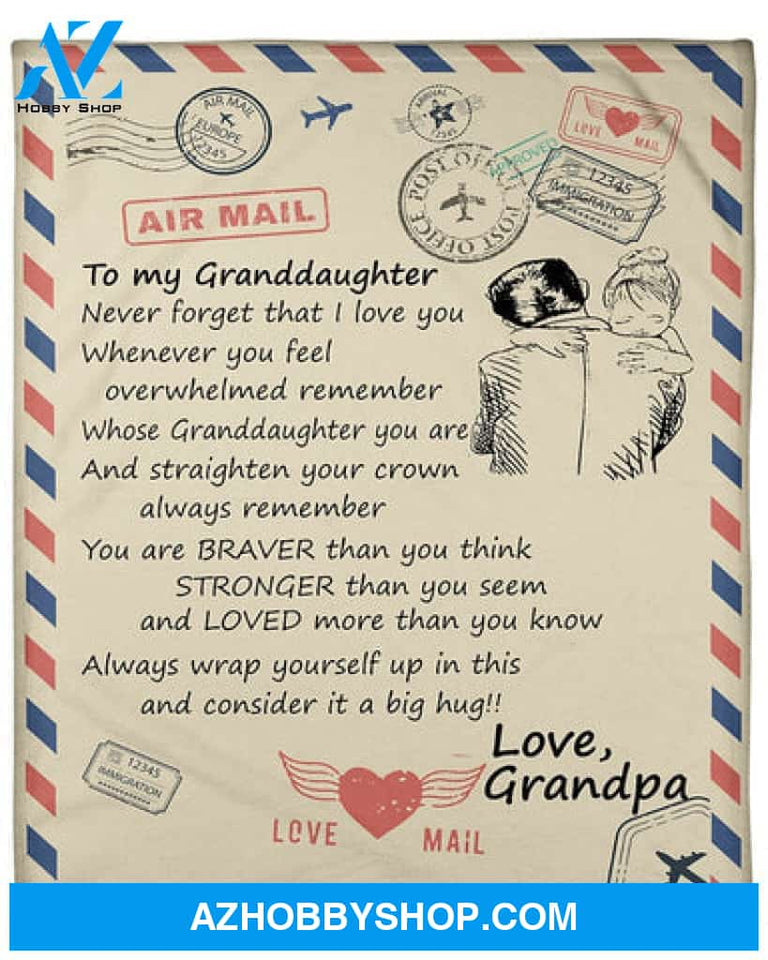 AZ
HOBBY SHOP
AIR MAIL
EUROPE
12345
ARRIVAL
12345
LOVE MAIL
POST OFFICE POST OFFICE
APPROVED
12345
IMMIGRATION
AIR MAIL
To my Granddaughter
Never forget that I love you
Whenever you feel
overwhelmed remember
Whose Granddaughter you are
And straighten your crown
always remember
You are BRAVER than you think
STRONGER than you seem
and LOVED more than you know
Always wrap yourself up in this
and consider it a big hug!!
Love,
Grandpa
12345
IMMIGRATION
LOVE MAIL
AZHOBBYSHOP.COM